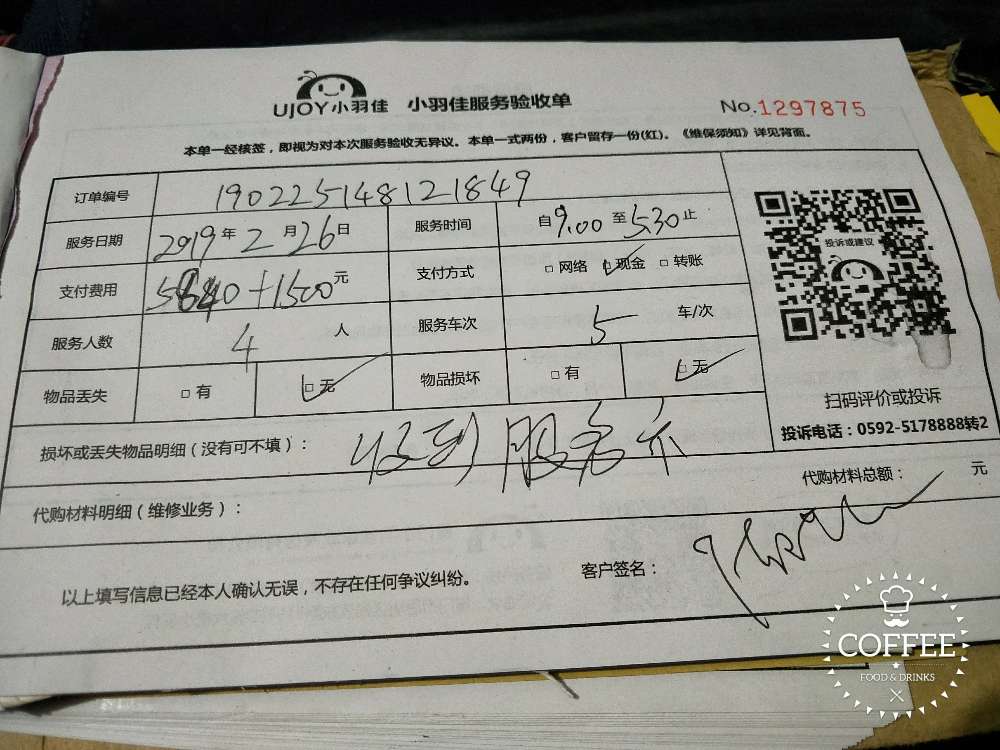 UJOY小羽佳 小羽佳服务验收单
No.1297875
本单一经核签，即视为对本次服务验收无异议。本单一式两份，客户留存一份(红)。《维保须知》详见背面。
订单编号 190225148121849
服务日期 2019年2月26日 服务时间 自9.00至5.30止
支付费用 +1500元 支付方式 □网络 □现金 □转账
服务人数 4人 服务车次 5车/次
物品丢失 □有 □无 物品损坏 □有 □无
投诉或建议
扫码评价或投诉
投诉电话：0592-5178888转2
损坏或丢失物品明细（没有可不填）： 收到 服务
代购材料明细（维修业务）： 代购材料总额： 元
以上填写信息已经本人确认无误，不存在任何争议纠纷。 客户签名：
COFFEE
FOOD & DRINKS